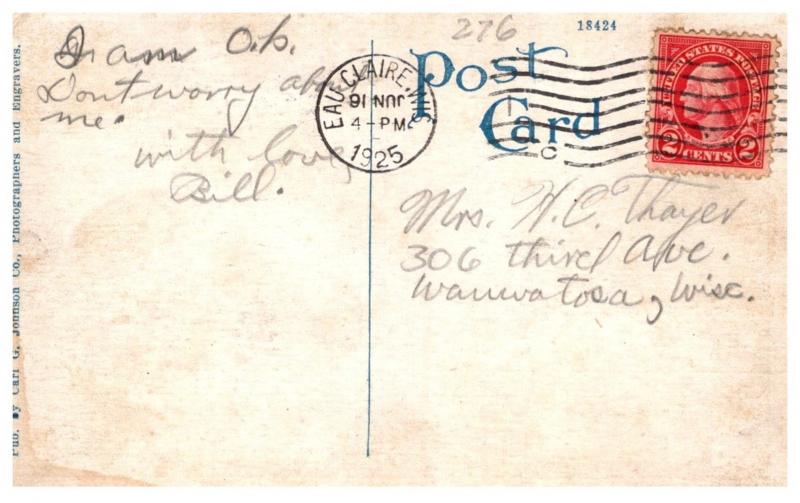 276
18424
Post
Card
EAU CLAIRE, WIS
JUN 16
4-PM
1925
C
UNITED STATES POSTAGE
2 CENTS 2
I am O.k.
Dont worry about
me.
with love,
Bill.
Mrs. H. C. Thayer
306 third Ave.
Wauwatosa, Wisc.
Pub. by Carl G. Johnson Co., Photographers and Engravers.